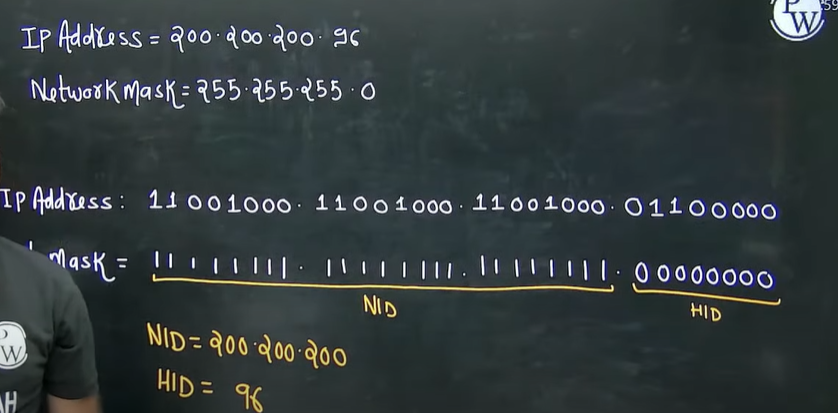 PW
59
IP Address = 200.200.200.96
Network Mask = 255.255.255.0
IP Address: 11001000.11001000.11001000.01100000
Mask = 11111111.11111111.11111111.00000000
NID HID
NID = 200.200.200
HID = 96
PW
AH